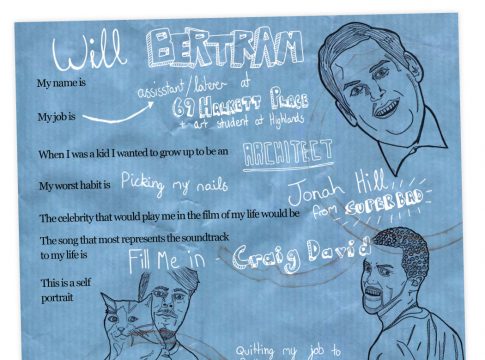 Will BERTRAM
My name is
assisstant/laterer at
My job is
69 HALKETT PLACE
+ art student at Highlands
When I was a kid I wanted to grow up to be an ARCHITECT
My worst habit is Picking my nails
Jonah Hill
The celebrity that would play me in the film of my life would be
from SUPERBAD
The song that most represents the soundtrack
to my life is
Fill Me in - Craig David
This is a self
portrait
Quitting my job to